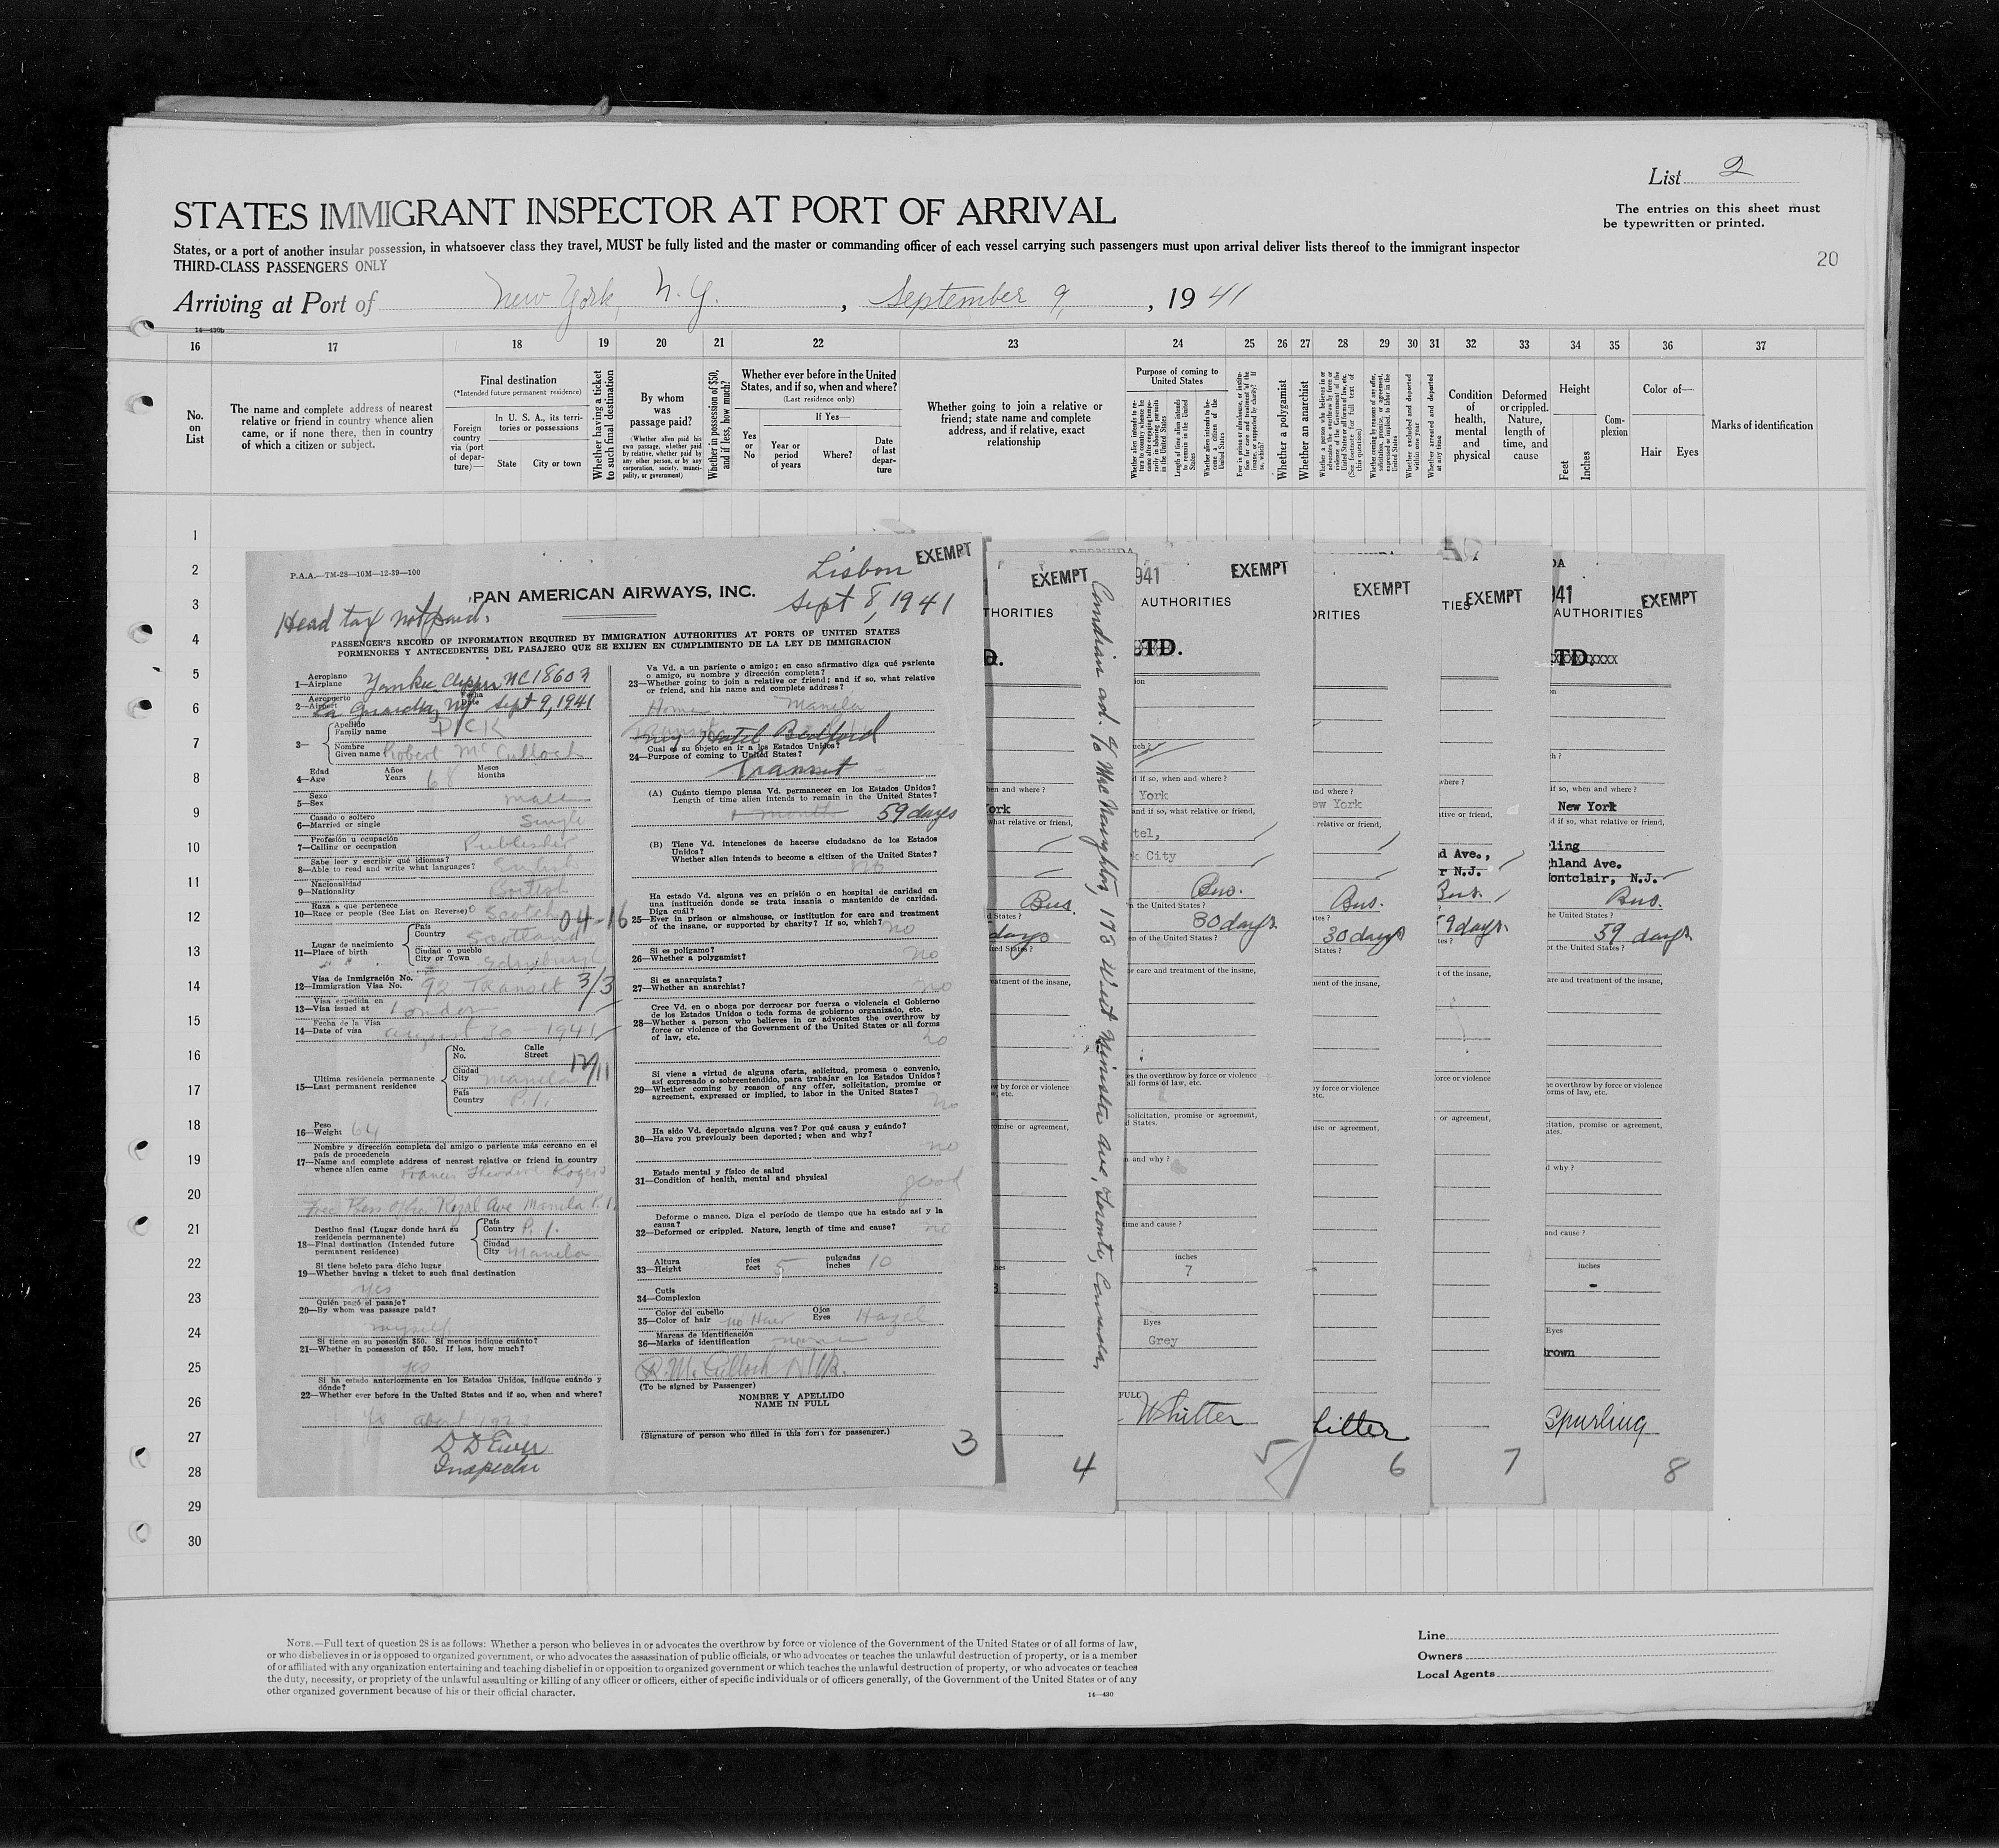 List 2
The entries on this sheet must
be typewritten or printed.
STATES IMMIGRANT INSPECTOR AT PORT OF ARRIVAL
States, or a port of another insular possession, in whatsoever class they travel, MUST be fully listed and the master or commanding officer of each vessel carrying such passengers must upon arrival deliver lists thereof to the immigrant inspector
THIRD-CLASS PASSENGERS ONLY
20
Arriving at Port of New York, N.Y., September 9, 1941
14—430b
16 17 18 19 20 21 22 23 24 25 26 27 28 29 30 31 32 33 34 35 36 37
No. on List
The name and complete address of nearest relative or friend in country whence alien came, or if none there, then in country of which a citizen or subject.
Final destination
(*Intended future permanent residence)
Foreign country via (port of departure)—
In U. S. A., its territories or possessions
State
City or town
Whether having a ticket to such final destination
By whom was passage paid?
(Whether alien paid his own passage, whether paid by relative, whether paid by any other person, or by any corporation, society, municipality, or government)
Whether in possession of $50, and if less, how much?
Whether ever before in the United States, and if so, when and where?
(Last residence only)
If Yes—
Yes or No
Year or period of years
Where?
Date of last departure
Whether going to join a relative or friend; state name and complete address, and if relative, exact relationship
Purpose of coming to United States
Length of time alien intends to remain in the United States
Whether alien intends to become a citizen of the United States
Whether a polygamist
Whether an anarchist
Whether excluded and deported within one year
Whether arrested and deported at any time
Condition of health, mental and physical
Deformed or crippled. Nature, length of time, and cause
Height
Feet
Inches
Complexion
Color of—
Hair
Eyes
Marks of identification
1
2
3
4
5
6
7
8
9
10
11
12
13
14
15
16
17
18
19
20
21
22
23
24
25
26
27
28
29
30
P.A.A.—TM-28—10M—12-39—100
Lisbon
EXEMPT
PAN AMERICAN AIRWAYS, INC.
Sept 8, 1941
Head tax not paid.
PASSENGER'S RECORD OF INFORMATION REQUIRED BY IMMIGRATION AUTHORITIES AT PORTS OF UNITED STATES
PORMENORES Y ANTECEDENTES DEL PASAJERO QUE SE EXIJEN EN CUMPLIMIENTO DE LA LEY DE IMMIGRACION
Aeroplano
1—Airplane Yankee Clipper NC18603
Aeropuerto Fecha
2—Airport La Guardia, NY Date Sept 9, 1941
Apellido
3— Family name DICK
Nombre
Given name Robert McCulloch
Edad Años Meses
4—Age Years 68 Months
Sexo
5—Sex male
Casado o soltero
6—Married or single Single
Profesión u ocupación
7—Calling or occupation Publisher
Sabe leer y escribir qué idiomas?
8—Able to read and write what languages? English
Nacionalidad
9—Nationality British
Raza a que pertenece
10—Race or people (See List on Reverse) Scotch 04-16
País
Country Scotland
11—Lugar de nacimiento
Place of birth
Ciudad o pueblo
City or Town Edinburgh
Visa de Inmigración No.
12—Immigration Visa No. 92 Transit 3/3
Visa expedida en
13—Visa issued at London
Fecha de la Visa
14—Date of visa August 30 - 1941
No. Calle
No. Street 12/11
Ultima residencia permanente
15—Last permanent residence
Ciudad
City Manila
País
Country P.I.
Peso
16—Weight 64
Nombre y dirección completa del amigo o pariente más cercano en el
país de procedencia
17—Name and complete address of nearest relative or friend in country
whence alien came Francis Theodore Rogers
Free Press Office Rizal Ave Manila P.I.
Destino final (Lugar donde hará su
residencia permanente)
18—Final destination (Intended future
permanent residence)
País
Country P.I.
Ciudad
City Manila
Si tiene boleto para dicho lugar
19—Whether having a ticket to such final destination
yes
Quién pagó el pasaje?
20—By whom was passage paid?
myself
Si tiene en su posesión $50. Si menos indique cuánto?
21—Whether in possession of $50. If less, how much?
yes
Si ha estado anteriormente en los Estados Unidos, indique cuándo y
dónde?
22—Whether ever before in the United States and if so, when and where?
Inspector
Va Vd. a un pariente o amigo; en caso afirmativo diga qué pariente
o amigo, su nombre y dirección completa?
23—Whether going to join a relative or friend; and if so, what relative
or friend, and his name and complete address?
Home Manila
Hotel Bedford
Cual es su objeto en ir a los Estados Unidos?
24—Purpose of coming to United States?
Transit
(A) Cuánto tiempo piensa Vd. permanecer en los Estados Unidos?
Length of time alien intends to remain in the United States?
59 days
(B) Tiene Vd. intenciones de hacerse ciudadano de los Estados
Unidos?
Whether alien intends to become a citizen of the United States?
no
Ha estado Vd. alguna vez en prisión o en hospital de caridad en
una institución donde se trata insania o mantenido de caridad.
Diga cuál?
25—Ever in prison or almshouse, or institution for care and treatment
of the insane, or supported by charity? If so, which? no
Si es polígamo?
26—Whether a polygamist? no
Si es anarquista?
27—Whether an anarchist? no
Cree Vd. en o aboga por derrocar por fuerza o violencia el Gobierno
de los Estados Unidos o toda forma de gobierno organizado, etc.
28—Whether a person who believes in or advocates the overthrow by
force or violence of the Government of the United States or all forms
of law, etc. no
Si viene a virtud de alguna oferta, solicitud, promesa o convenio,
así expresado o sobreentendido, para trabajar en los Estados Unidos?
29—Whether coming by reason of any offer, solicitation, promise or
agreement, expressed or implied, to labor in the United States?
no
Ha sido Vd. deportado alguna vez? Por qué causa y cuándo?
30—Have you previously been deported; when and why?
no
Estado mental y físico de salud
31—Condition of health, mental and physical
good
Deforme o manco. Diga el período de tiempo que ha estado así y la
causa?
32—Deformed or crippled. Nature, length of time and cause? no
Altura pies pulgadas
33—Height feet 5 inches 10
Cutis
34—Complexion
Color del cabello Ojos
35—Color of hair no Hair Eyes Hazel
Marcas de identificación
36—Marks of identification none
R. McCulloch Dick.
(To be signed by Passenger)
NOMBRE Y APELLIDO
NAME IN FULL
(Signature of person who filled in this form for passenger.)
3
EXEMPT
THORITIES
D.
hen and where?
York
what relative or friend,
Bus.
d States?
days
ited States?
eatment of the insane,
w by force or violence
w, etc.
omise or agreement,
4
Canadian ad. c/o MacNaughton, 173 West Minister Ave, Toronto, Canada.
941
EXEMPT
AUTHORITIES
LTD.
ion
uch?
d if so, when and where?
York
and if so, what relative or friend,
tel,
k City
Bus.
n the United States?
30 days.
en of the United States?
or care and treatment of the insane,
es the overthrow by force or violence
all forms of law, etc.
solicitation, promise or agreement,
d States.
n and why?
time and cause?
inches
7
Eyes
Grey
FULL
Whitter
5
EXEMPT
ORITIES
nd where?
ew York
relative or friend,
Bus.
tes?
30 days
States?
ment of the insane,
y force or violence
etc.
ise or agreement,
6
EXEMPT
TIES
where?
tive or friend,
d Ave.,
r N.J.
Bus.
9 days.
tes?
t of the insane,
orce or violence
or agreement,
7
DA
941
EXEMPT
AUTHORITIES
TD
on
h?
if so, when and where?
New York
d if so, what relative or friend,
ling
ghland Ave.
Montclair, N.J.
Bus.
he United States?
59 days.
of the United States?
are and treatment of the insane,
he overthrow by force or violence
orms of law, etc.
citation, promise or agreement,
ates.
d why?
and cause?
inches
-
Eyes
rown
Spurling
8
NOTE.—Full text of question 28 is as follows: Whether a person who believes in or advocates the overthrow by force or violence of the Government of the United States or of all forms of law,
or who disbelieves in or is opposed to organized government, or who advocates the assassination of public officials, or who advocates or teaches the unlawful destruction of property, or is a member
of or affiliated with any organization entertaining and teaching disbelief in or opposition to organized government or which teaches the unlawful destruction of property, or who advocates or teaches
the duty, necessity, or propriety of the unlawful assaulting or killing of any officer or officers, either of specific individuals or of officers generally, of the Government of the United States or of any
other organized government because of his or their official character.
14—430
Line
Owners
Local Agents